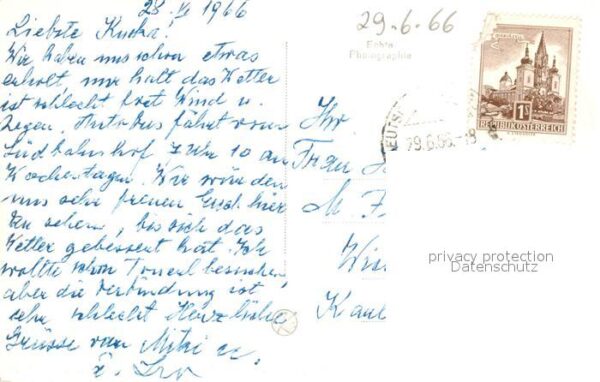 28. VI 1966
Liebste Kucka!
Wir haben uns schon etwas
erholt, nur halt das Wetter
ist schlecht Wind u.
Regen. Autobus fährt vom
Südbahnhof 7 Uhr 10 an
Wochentagen. Wir würden
uns sehr freuen Euch hier
zu sehen, bis sich das
Wetter gebessert hat. Ich
wollte schon besuchen,
aber die Verbindung ist
sehr schlecht Herzliche
Grüsse von Mitzi u.
29.6.66
Echte
Photographie
1S
REPUBLIK ÖSTERREICH
29.6.66-18
Frau
M. F
Wien
privacy protection
Datenschutz